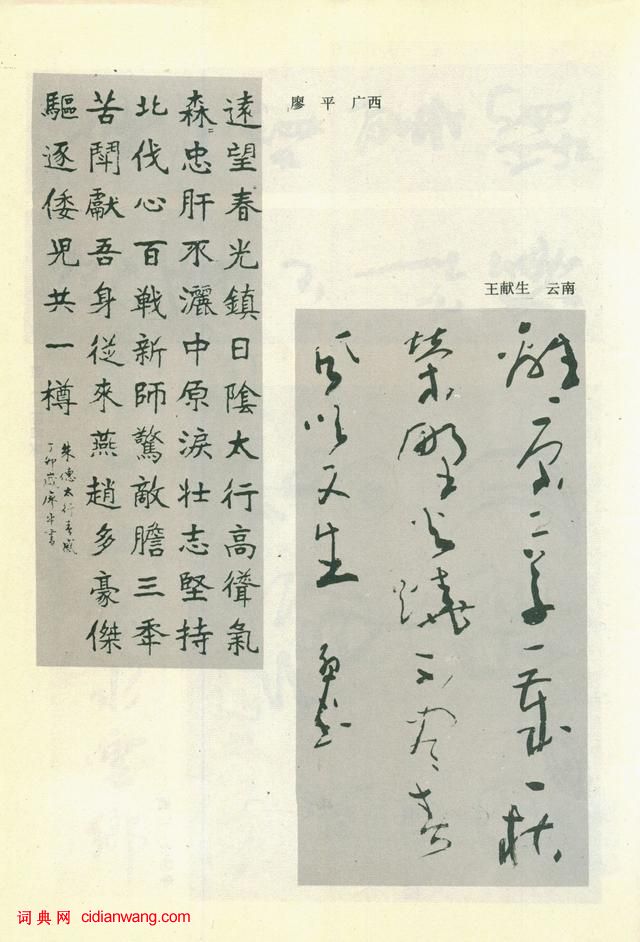 廖 平 广西
遠望春光鎮日陰太行高聳氣
森〻忠肝不灑中原淚壯志堅持
北伐心百戰新師驚敵膽三秊
苦鬥獻吾身從來燕趙多豪傑
驅逐倭児共一樽
朱德太行春感
丁卯歲廖平書
王献生 云南
離〻原上草一歲一枯
榮野火燒不盡春
風吹又生
词典网 cidianwang.com